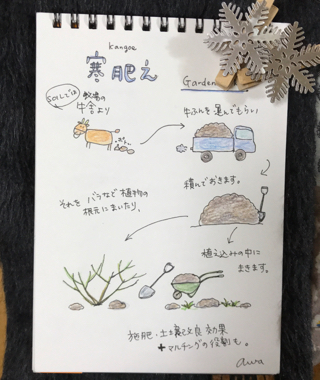 kangoe
寒肥え
Garden
SOILでは
牧場の
牛舎より
牛ふんを運んでもらい
積んでおきます。
それを バラなど植物の
根元にまいたり、
植え込みの中に
まきます。
施肥・土壌改良効果
+マルチングの役割も。
awa